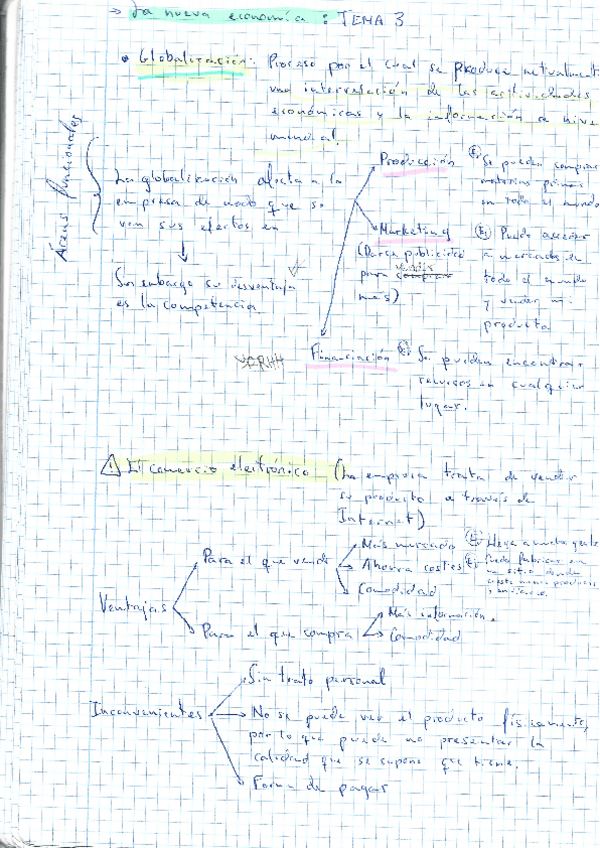 → La nueva economía: TEMA 3
• Globalización: Proceso por el cual se produce actualmente
una interrelación de las actividades
económicas y la información a nivel
mundial.
Áreas funcionales
La globalización afecta a la
empresa de modo que se
ven sus efectos en
Sin embargo su desventaja
es la competencia
Producción
Ej Se pueden comprar
materias primas
en todo el mundo
Marketing
(Darse publicidad
para
más)
Ej Puedo acceder
a mercados de
todo el mundo
y vender mi
producto
RRHH
Financiación
Ej Se pueden encontrar
recursos en cualquier
lugar.
El comercio electrónico (La empresa trata de vender
su producto a través de
Internet)
Ventajas
Para el que vende
Más mercado Ej Llega a mucha gente
Ahorra costes Ej Puedo fabricar en
un sitio donde
cueste menos producir
Comodidad
Para el que compra
Más información.
Comodidad
Inconvenientes
Sin trato personal
No se puede ver el producto físicamente,
por lo que puede no presentar la
calidad que se supone que tiene.
Forma de pagar